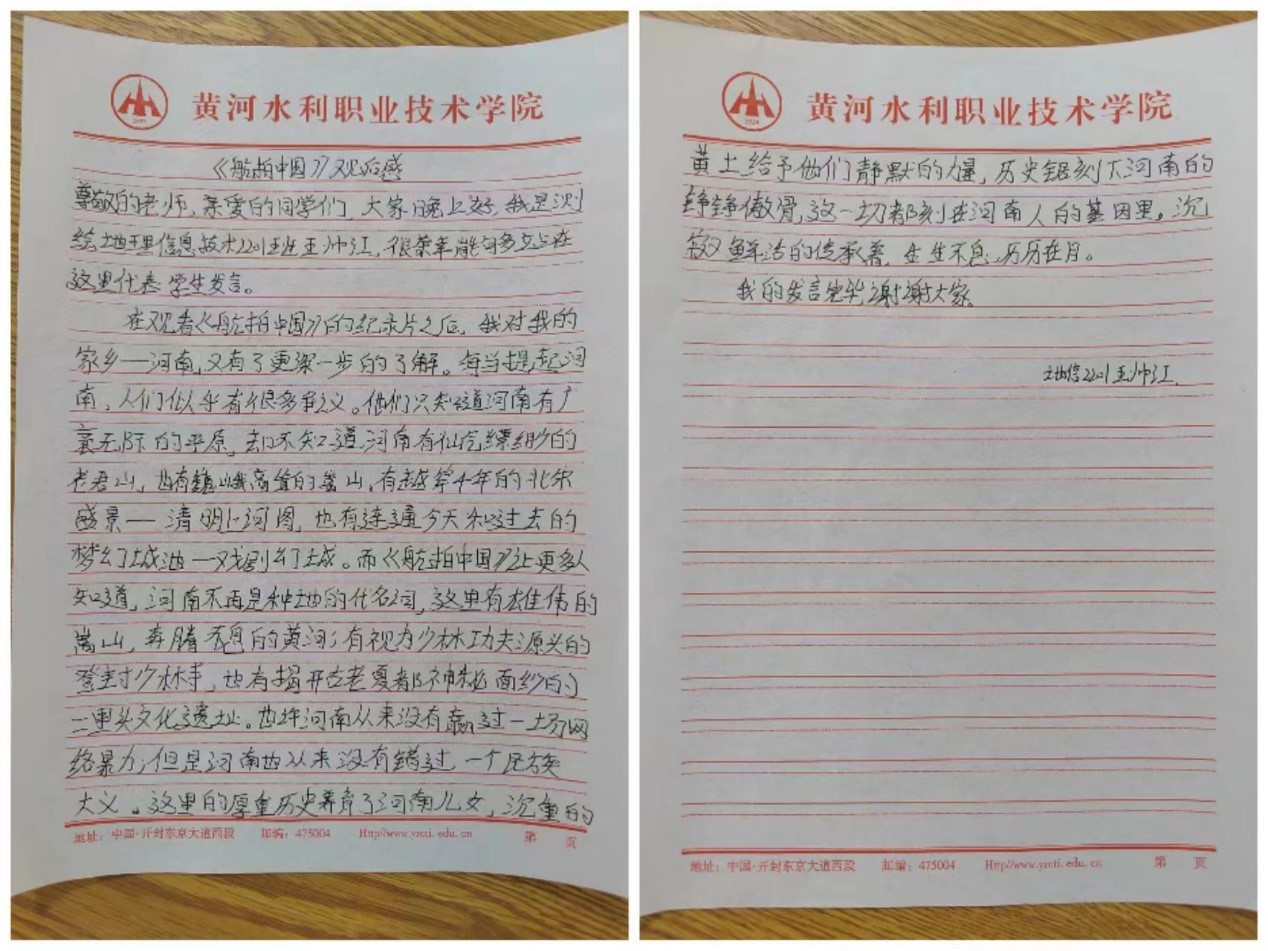 黄河水利职业技术学院
《航拍中国》观后感
尊敬的老师,亲爱的同学们,大家晚上好,我是测
绘地理信息技术2201班王帅江,很荣幸能够多次站在
这里代表学生发言。
在观看《航拍中国》的纪录片之后,我对我的
家乡——河南,又有了更深一步的了解。每当提起河
南,人们似乎有很多争议。他们只知道河南有广
袤无际的平原,却不知道河南有仙气缥缈的
老君山,也有巍峨高耸的嵩山,有越学千年的北宋
盛景——清明上河图,也有连通今天和过去的
梦幻城池—戏剧幻城。而《航拍中国》让更多人
知道,河南不再是种地的代名词,这里有雄伟的
嵩山,奔腾不息的黄河;有视为少林功夫源头的
登封少林寺,也有揭开古老夏都神秘面纱的
二里头文化遗址。也许河南从来没有赢过一场网
络暴力,但是河南也从来没有错过一个民族
大义。这里的厚重历史养育了河南儿女,沉重的
地址:中国·开封东京大道西段 邮编:475004 Http//www.yrcti.edu.cn 第 页
黄河水利职业技术学院
黄土给予他们静默的力量,历史锻刻下河南的
铮铮傲骨,这一切都刻在河南人的基因里。沉
寂又鲜活的传承着,生生不息,历历在目。
我的发言完毕,谢谢大家
地信2201 王帅江
地址:中国·开封东京大道西段 邮编:475004 Http//www.yrcti.edu.cn 第 页